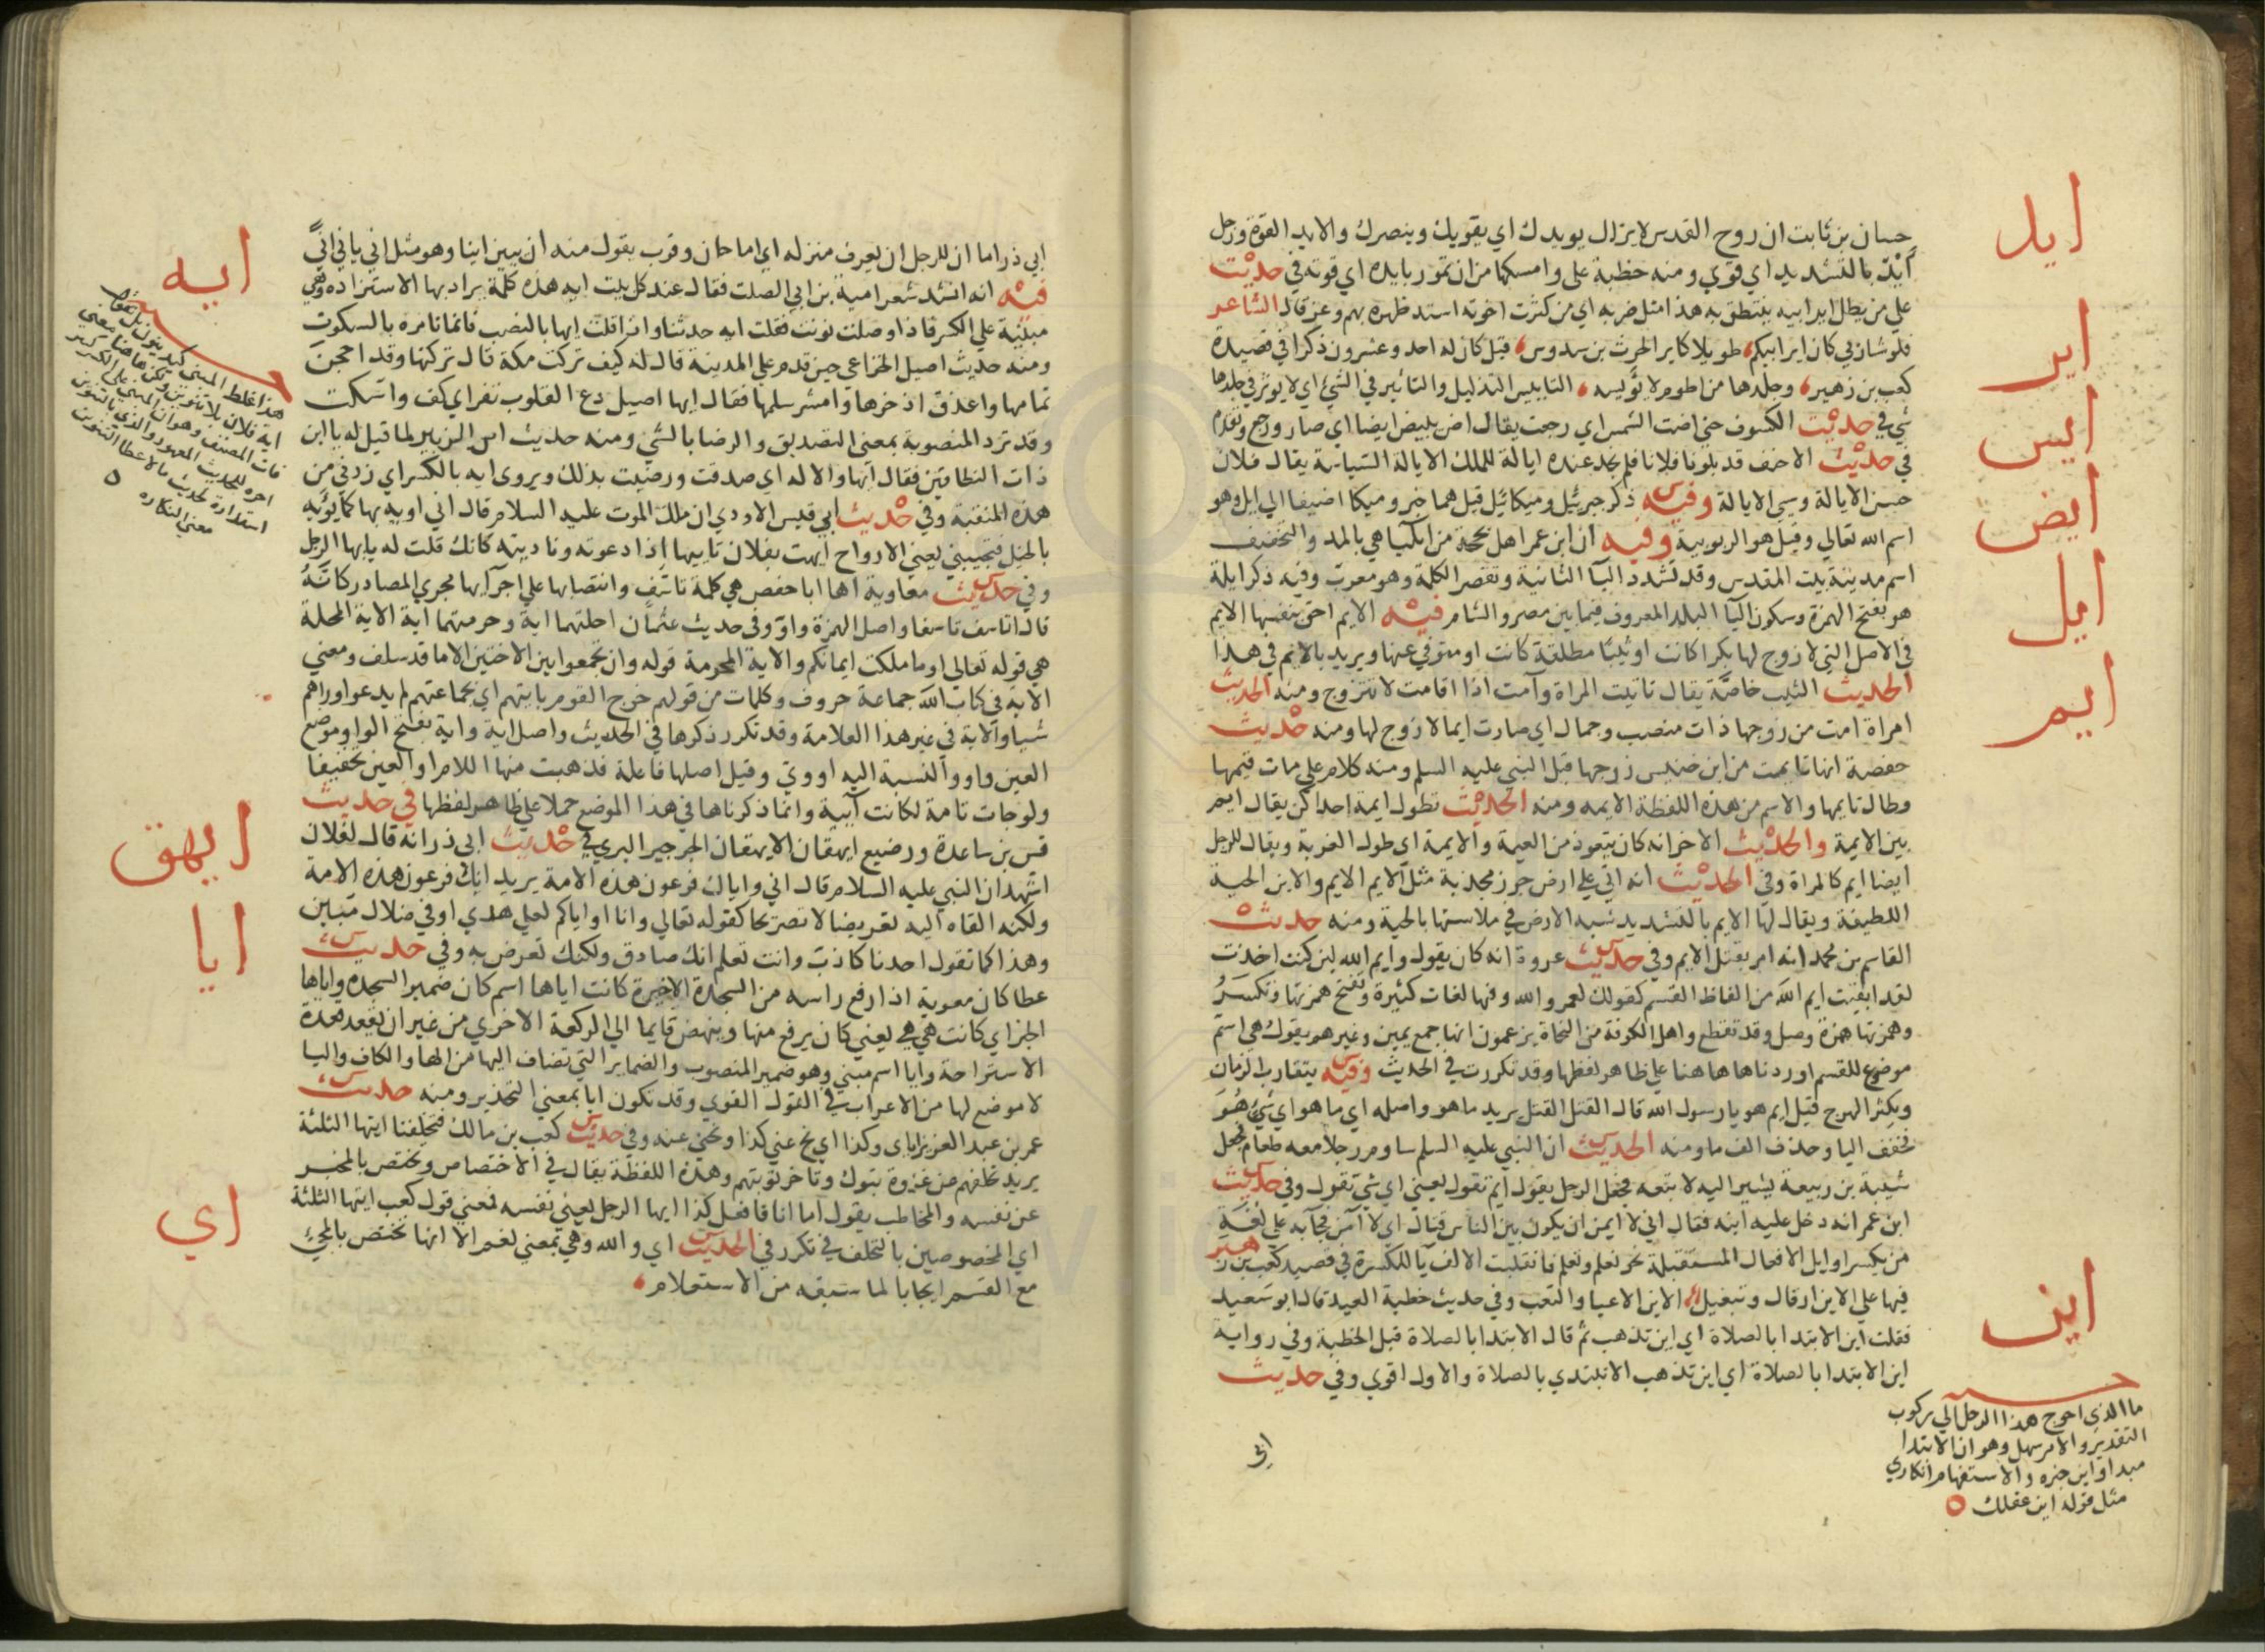 حسان بن ثابت ان روح القدس لا يزال يويدك اي يقويك وينصرك والايد القوة ورجل
ايد
أيّد بالتشديد اي قوي ومنه خطبة علي وامسكها من ان تمور بايده اي قوته في حديث
علي من يطل اير ابيه ينتطق به هذا مثل ضربه اي من كثرت اخوته استد ظهره بهم وعز قال الشاعر
اير
فلو شا ربي كان اير ابيكم طويلا كاير الحرث بن سدوس قيل كان له احد وعشرون ذكرا في قصيدة
كعب بن زهير وجلدها من اطوم لا يؤيسه التاييس التذليل والتاثير في الشئ اي لا يوثر في جلدها
ايس
شي في حديث الكسوف حتي اضت الشمس اي رجعت يقال اض يئيض ايضا اي صار ورجع وتقدم
في حديث الاحنف قد بلونا فلانا فلم نجد عنده ايالة للملك الايالة السياسة يقال فلان
ايض
حسن الايالة وسي الايالة وفيه ذكر جبريئل وميكائيل قيل هما جبر وميكا اضيفا الي ايل وهو
اسم الله تعالي وقيل هو الربوبية وفيه ان ابن عمر اهل بحجة من ايليا هي بالمد والتخفيف
ايل
اسم مدينة بيت المقدس وقد تشدد اليآ الثانية وتقصر الكلمة وهو معرب وفيه ذكر ايلة
هو بفتح الهمزة وسكون اليآ البلد المعروف فيما بين مصر والشام فيه الايم احق بنفسها الايم
في الاصل التي لا زوج لها بكرا كانت او ثيبا مطلقة كانت او متوفي عنها ويريد بالايم في هذا
ايم
الحديث الثيب خاصة يقال تايت المراة وآمت اذا اقامت لا تتزوج ومنه الحديث
امراة امت من زوجها ذات منصب وجمال اي صارت ايما لا زوج لها ومنه حديث
حفصة انها تايمت من ابن خنيس زوجها قبل النبي عليه السلم ومنه كلام علي مات قيمها
وطال تايمها والاسم من هذه اللفظة الايمه ومنه الحديث تطول ايمة احداكن يقال ايم
بين الايمة والحديث الاخر انه كان يتعوذ من العيمة والايمة اي طول العزبة ويقال للرجل
ايضا ايم كالمراة وفي الحديث انه اتي علي ارض جرز مجدبة مثل الايم الايم والاين الحية
اللطيفة ويقال لها الايم بالتشديد شبه الارض في ملاستها بالحية ومنه حديث
القاسم بن محمد انه امر بقتل الايم وفي حديث عروة انه كان يقول وايم الله لين كنت اخذت
لقد ابقيت ايم الله من الفاظ القسم كقولك لعمر والله وفيها لغات كثيرة وتفتح همزتها وتكسر
وهمزتها همزة وصل وقد تقطع واهل الكوفة من النحاة يزعمون انها جمع يمين وغيرهم يقول هي اسم
موضوع للقسم اوردناها ها هنا علي ظاهر لفظها وقد تكررت في الحديث وفيه يتقارب الزمان
ويكثر الهرج قيل ايم هو يا رسول الله قال القتل القتل يريد ما هو واصله اي ما هو اي شئ هو
فخفف اليا وحذف الف ما ومنه الحديث ان النبي عليه السلم ساوم رجلا معه طعام فجعل
شيبة بن ربيعة يشير اليه لا تبعه فجعل الرجل يقول ايم تقول يعني اي شي تقول وفي حديث
ابن عمر انه دخل عليه ابنه فقال اني لا ايمن ان يكون بين الناس قتال اي لا آمن فجآ به علي لغة
من يكسر اوايل الافعال المستقبلة نحو تعلم وتعلم فانقلبت الالف يآ للكسرة في قصيد كعب بن زهير
اين
فيها علي الاين ارقال وتبغيل الاين الاعيا والتعب وفي حديث خطبة العيد قال ابو سعيد
فقلت اين الابتدا بالصلاة اي اين تذهب ثم قال الابتدا بالصلاة قبل الخطبة وفي رواية
اين الابتدا بالصلاة اي اين تذهب الا تبتدي بالصلاة والاول اقوي وفي حديث
ما الذي احوج هذا الرجل الي ركوب
التقدير والامر سهل وهو ان الابتدا
مبتدا واين خبره والاستفهام انكاري
مثل قوله اين عقلك
ابي
ابي ذر اما ان للرجل ان يعرف منزله اي اما حان وقرب يقول منه ان يئين اينا وهو مثل اني ياني انيً
ايه
فيه انه انشد شعر امية بن ابي الصلت فقال عند كل بيت ايه هذه كلمة يراد بها الاستزاده وهي
مبنية علي الكسر فاذا وصلت نونت فقلت ايه حدثنا واذا قلت ايها بالنصب فانما تامره بالسكوت
ومنه حديث اصيل الخزاعي حين قدم علي المدينة قال له كيف تركت مكة قال تركتها وقد احجن
ثمامها واعذق اذخرها وامشر سلمها فقال ايها اصيل دع القلوب تقر اي كف واسكت
وقد ترد المنصوبة بمعني التصديق والرضا بالشئ ومنه حديث ابن الزبير لما قيل له يا ابن
ذات النطاقين فقال ايها والاله اي صدقت ورضيت بذلك ويروي ايه بالكسر اي زدني من
هذه المنقبة وفي حديث ابي قيس الاودي ان ملك الموت عليه السلام قال اني اويه بها كما يؤيه
بالخيل فتجيبني يعني الارواح ايهت بفلان تاييها اذا دعوته وناديته كانك قلت له يا ايها الرجل
وفي حديث معاوية آها ابا حفص هي كلمة تاسف وانتصابها علي اجرآيها مجري المصادر كانه
قال اتاسف تاسفا واصل الهمزة واو وفي حديث عثمان احلتهما اية وحرمتهما اية الاية المحلة
هي قوله تعالي او ما ملكت ايمانكم والاية المحرمة قوله وان تجمعوا بين الاختين الا ما قد سلف ومعني
الاية في كتاب الله جماعة حروف وكلمات من قولهم خرج القوم بايتهم اي بجماعتهم لم يدعوا وراهم
شيا والاية في غير هذا العلامة وقد تكرر ذكرها في الحديث واصل اية واية بفتح الواو وموضع
العين واو والنسبة اليه اووي وقيل اصلها فاعلة فذهبت منها اللام او العين تخفيفا
ولو جات تامة لكانت آيية وانما ذكرناها في هذا الموضع حملا علي ظاهر لفظها في حديث
ايهق
قس بن ساعدة ورضيع ايهقان الايهقان الجرجير البري في حديث ابي ذر انه قال لفلان
اشهد ان النبي عليه السلام قال اني واياك فرعون هذه الامة يريد انك فرعون هذه الامة
ايا
ولكنه القاه اليه تعريضا لا تصريحا كقوله تعالي وانا او اياكم لعلي هدي او في ضلال مبين
وهذا كما تقول احدنا كاذب وانت تعلم انك صادق ولكنك تعرض به وفي حديث
عطا كان معوية اذا رفع راسه من السجدة الاخيرة كانت اياها اسم كان ضمير السجدة واياها
الخبر اي كانت هي هي يعني كان يرفع منها وينهض قايما الي الركعة الاخري من غير ان يقعد قعدة
الاستراحة وايا اسم مبني وهو ضمير المنصوب والضماير التي تضاف اليها من الها والكاف واليا
لا موضع لها من الاعراب في القول القوي وقد تكون ايا بمعني التحذير ومنه حديث
عمر بن عبد العزيز اياي وكذا اي نح عني كذا ونحني عنه وفي حديث كعب بن مالك فتخلفنا ايتها الثلثة
يريد تخلفهم عن غزوة تبوك وتاخر توبتهم وهذه اللفظة يقال في الاختصاص وتختص بالمخبر
عن نفسه والمخاطب يقول اما انا فافعل كذا ايها الرجل يعني نفسه فمعني قول كعب ايتها الثلثة
اي
اي المخصوصين بالتخلف في تكرر في الحديث اي والله وهي بمعني نعم الا انها تختص بالمجئ
مع القسم ايجابا لما سبقه من الاستعلام